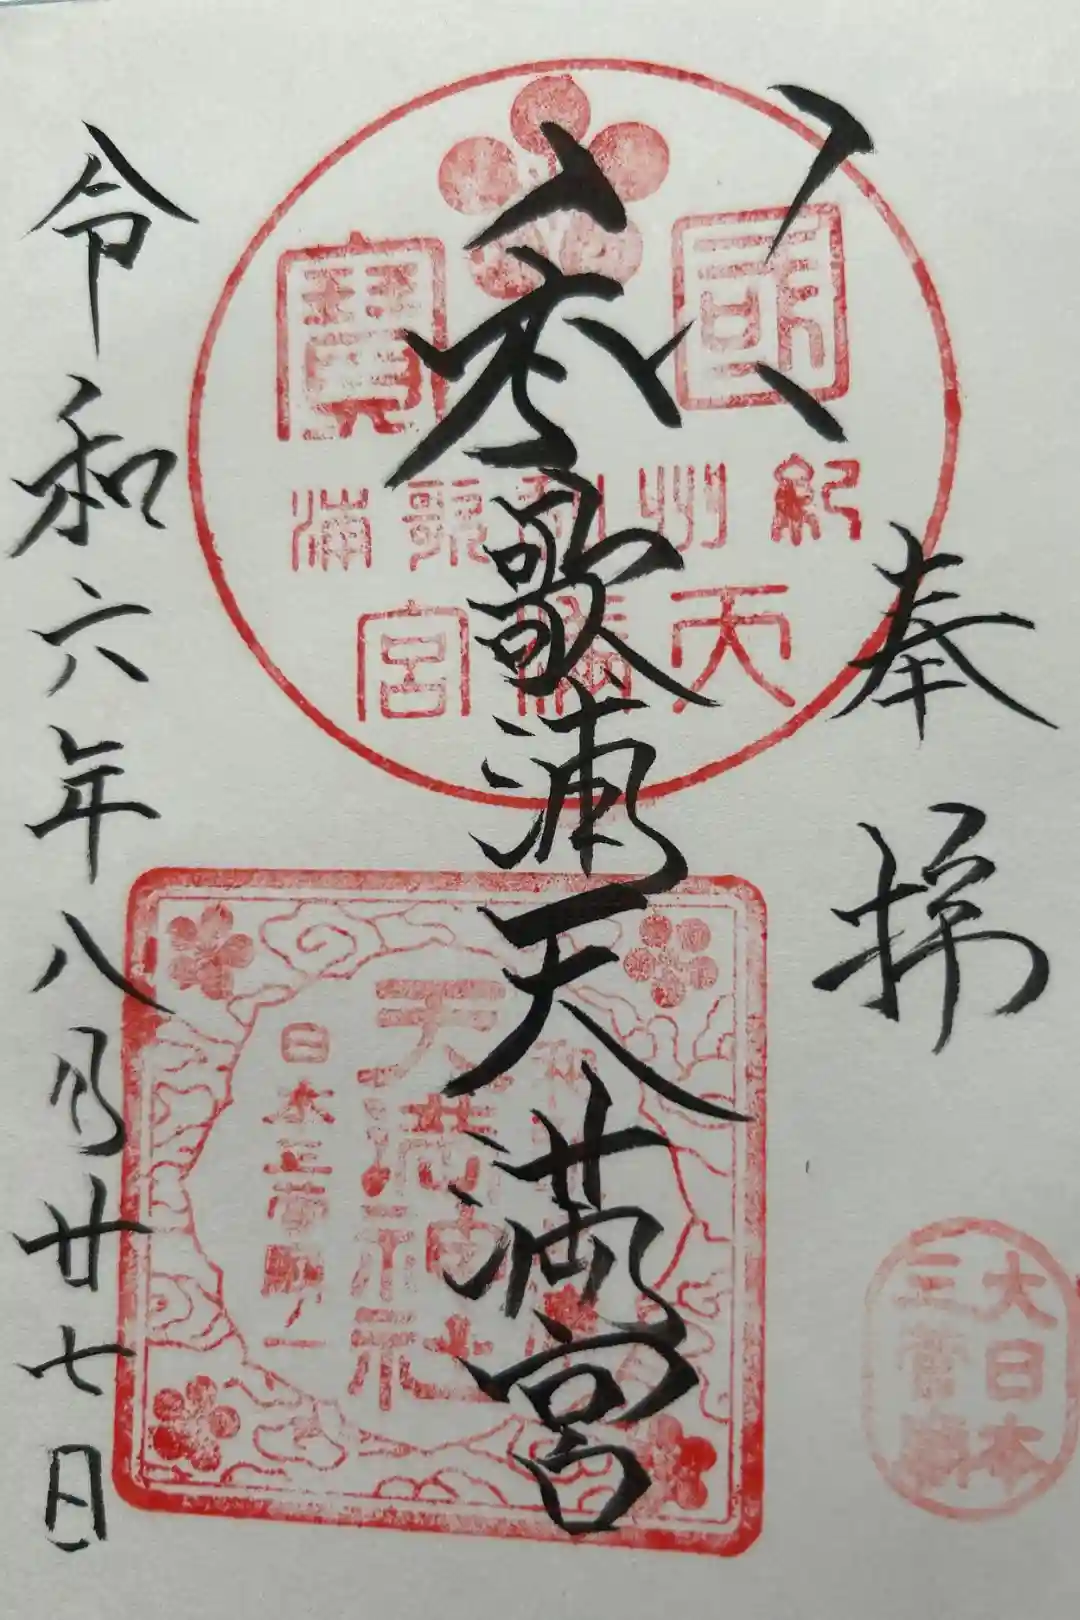 奉拝
和歌浦天満宮
令和六年八月廿七日
國寶
紀州和歌浦
天滿宮
天満神社
日本三菅廟ノ一
大日本
三菅廟